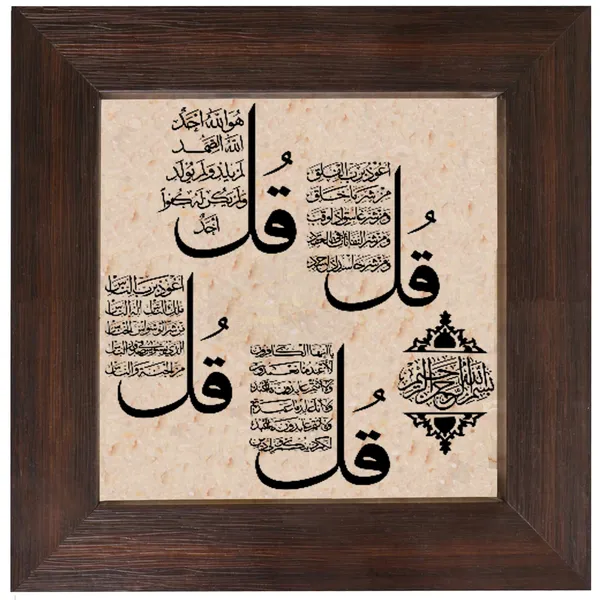 قُل
هو الله أحدٌ
الله الصمد
لم يلد ولم يولد
ولم يكن له كفوا
أحدٌ
قُل
أعوذ برب الفلق
من شر ما خلق
ومن شر غاسق إذا وقب
ومن شر النفاثات في العقد
ومن شر حاسد إذا حسد
قُل
أعوذ برب الناس
ملك الناس إله الناس
من شر الوسواس الخناس
الذي يوسوس في صدور الناس
من الجنة والناس
قُل
يا أيها الكافرون
لا أعبد ما تعبدون
ولا أنتم عابدون ما أعبد
ولا أنا عابد ما عبدتم
ولا أنتم عابدون ما أعبد
لكم دينكم ولي دين
بسم الله الرحمن الرحيم